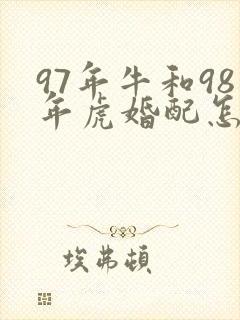 97年牛和98
年虎婚配怎
埃弗頓